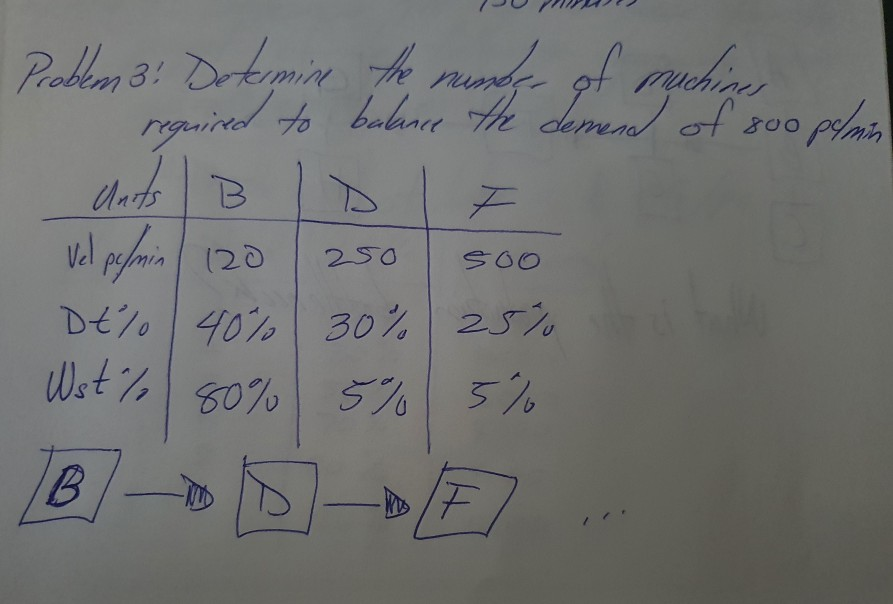 150 minutes
Problem 3: Determine the number of machines
required to balance the demend of 800 pc/min
Units B D F
Vel pc/min 120 250 500
Dt% 40% 30% 25%
Wst% 80% 5% 5%
B D F ...